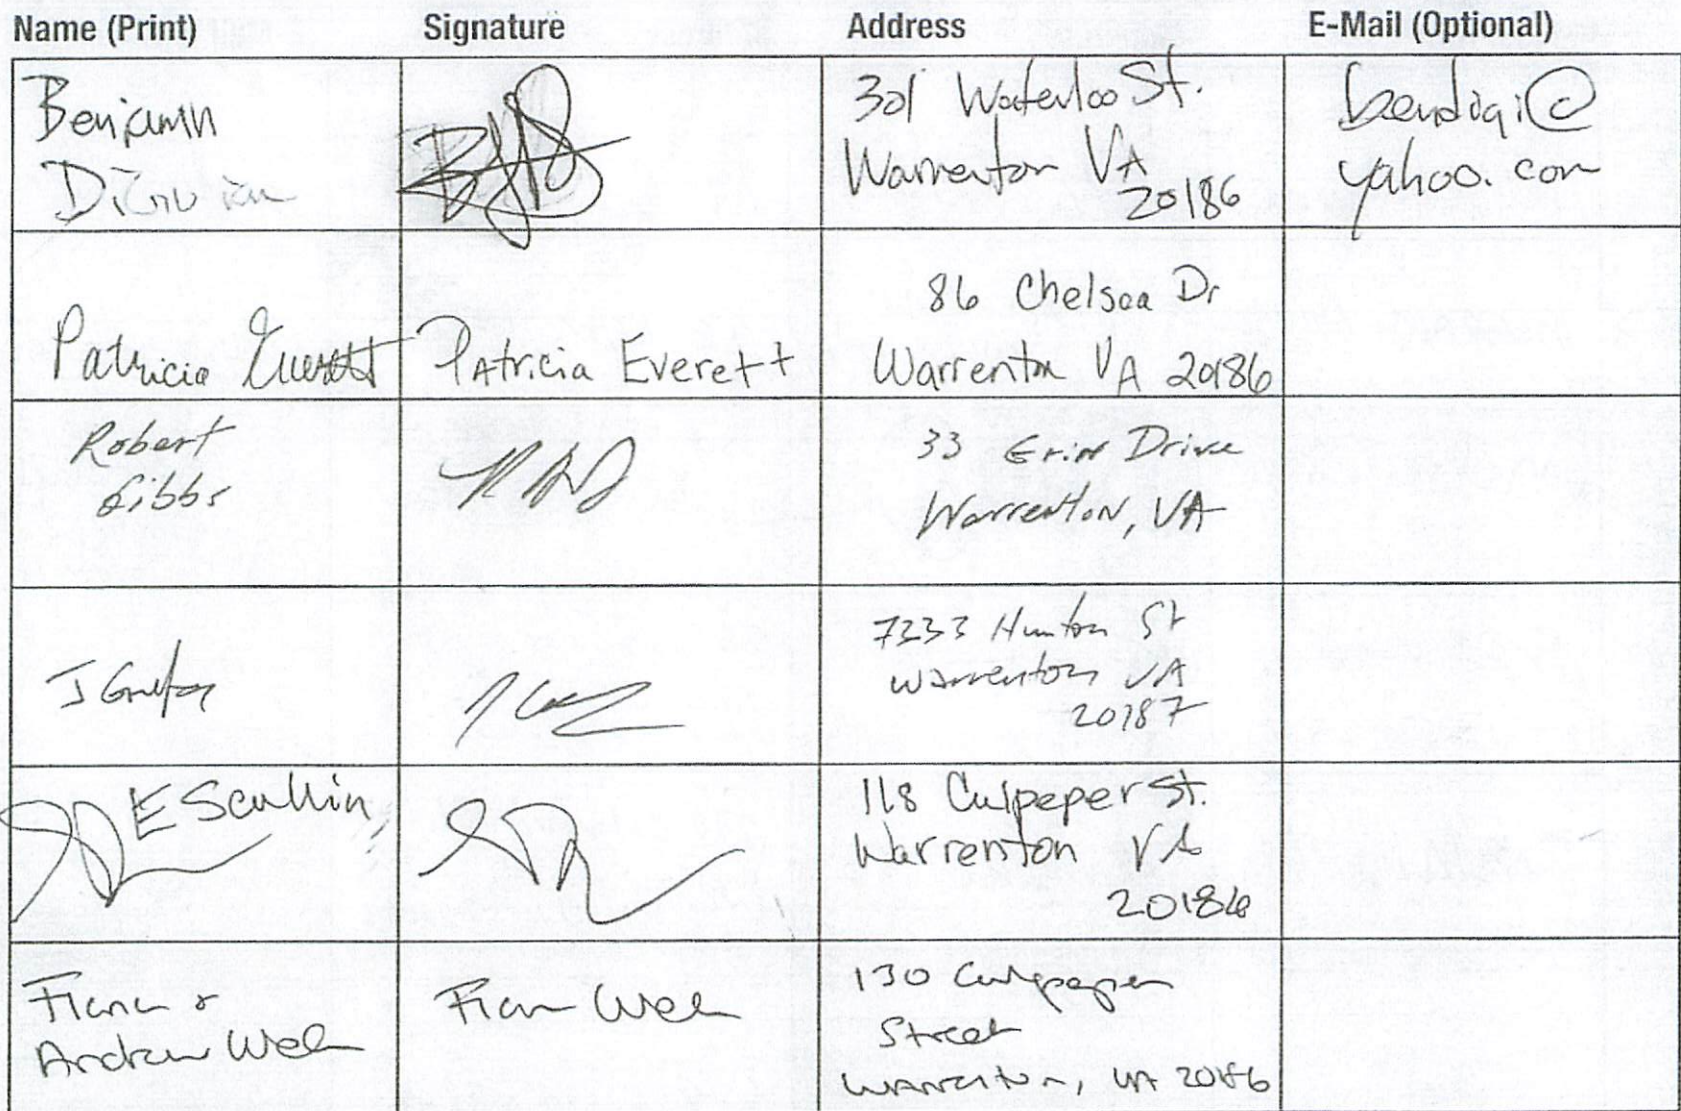 Name (Print) Signature Address E-Mail (Optional)
Benjamin
301 Waterloo St.
Warrenton VA
20186
bendigi@
yahoo.com
Patricia Everett
Patricia Everett
86 Chelsea Dr
Warrenton VA 20186
Robert
Gibbs
33 Erin Drive
Warrenton, VA
J
7233 Hunton St
Warrenton VA
20187
E Scullin
118 Culpeper St.
Warrenton VA
20186
&
Andrew
130 Culpeper
Street
Warrenton, VA 20186